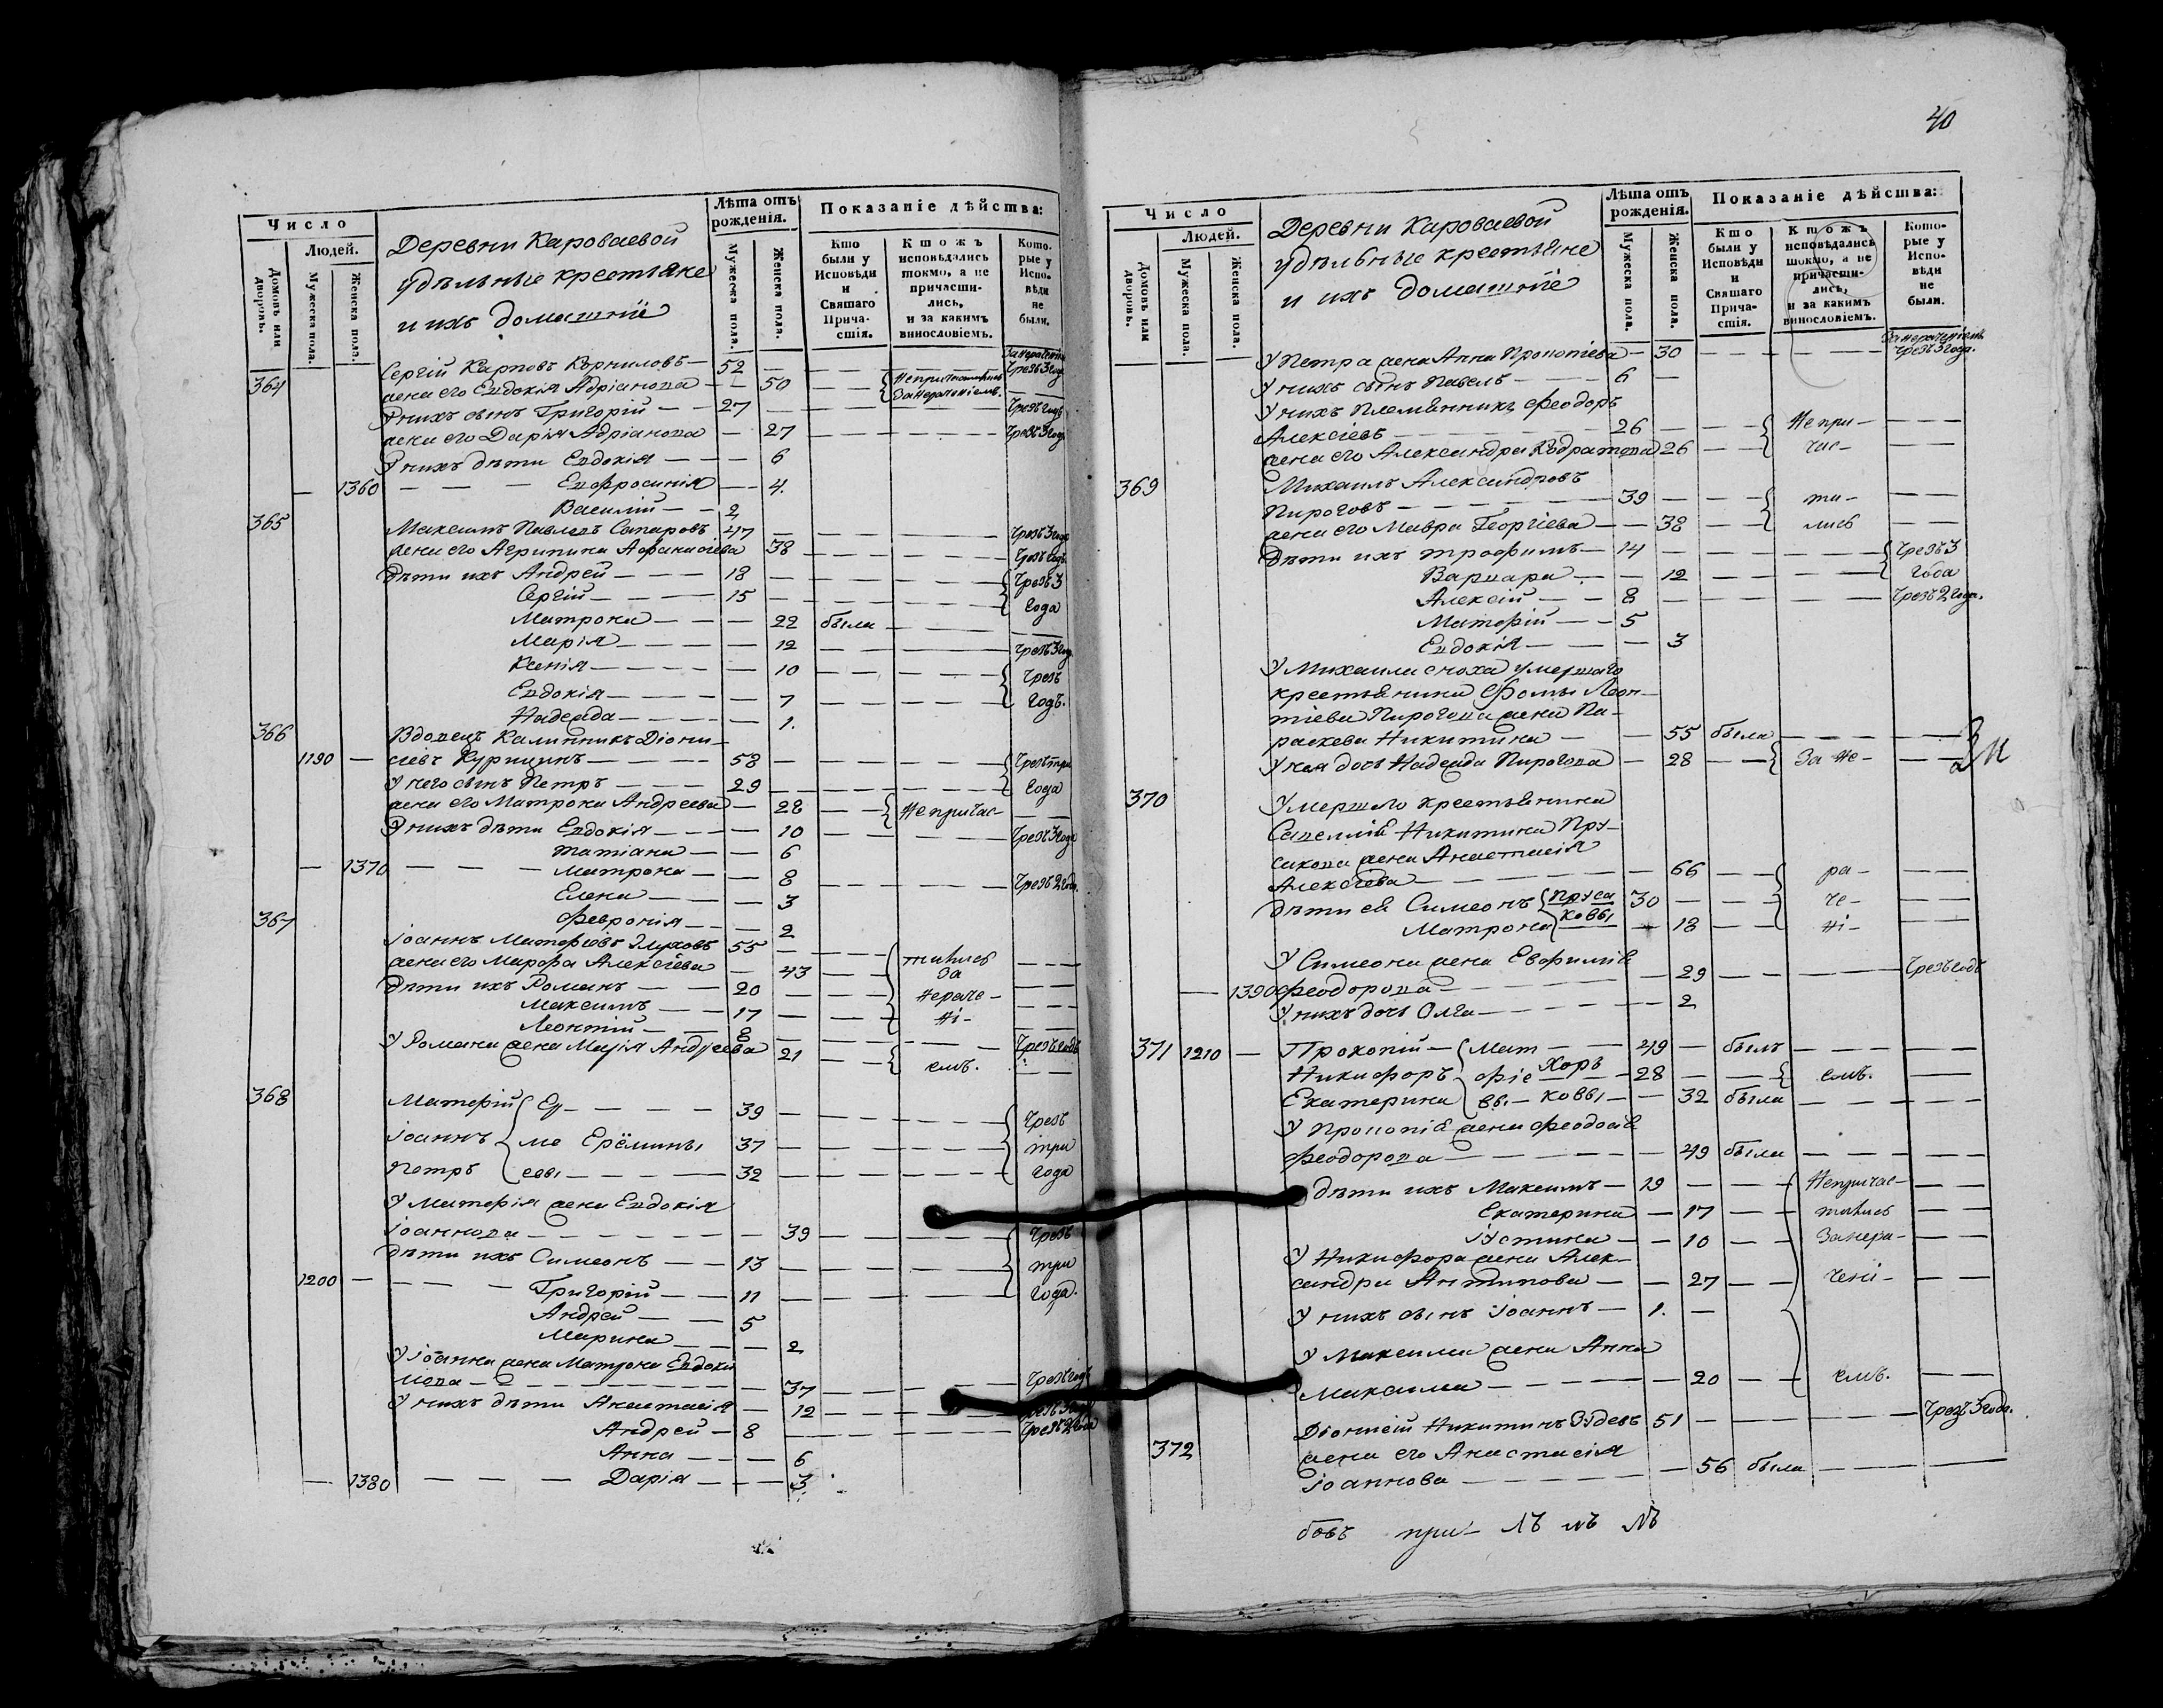 Число
Людей.
Домовъ или дворовъ.
Мужеска пола.
Женска пола.
Деревни Кароваевой
удѣльные крестьяне
и ихъ домашніе
Лѣта отъ рожденія.
Мужеска пола.
Женска пола.
Показаніе дѣйства:
Кто были у Исповѣди и Святаго Прича-стія.
Ктожъ исповѣдались токмо, а не причасти-лись, и за какимъ винословіемъ.
Кото-рые у Испо-вѣди не были.
364 Сергій Карповъ Корниловъ — 52 — Чрезъ 3 года
жена его Евдокія Адріанова — 50
У нихъ сынъ Григорій — 27 — Чрезъ годъ
жена его Дарія Адріанова — 27 — Чрезъ 3 года
У нихъ дѣти Евдокія — 6
1360 — Евфросинія — 4.
Василій — 2
365 Максимъ Павловъ Сапаровъ 47 — Чрезъ 3 года
жена его Агрипина Афанасіева 38 — Чрезъ годъ
Дѣти ихъ Андрей — 18 — Чрезъ 3
Сергій — 15 — года
Матрона — 22 была
Марія — 12 — Чрезъ 3 год
Ксенія — 10 — Чрезъ
Евдокія — 7 — годъ.
Надежда — 1.
366 Вдовецъ Калинникъ Діони-
1190 — сіевъ Курицинъ — 58 — Чрезъ три
У него сынъ Петръ — 29 — года
жена его Матрона Андреева — 28 — Не причас-
У нихъ дѣти Евдокія — 10 — Чрезъ 3 года
Татіана — 6
1370 — Матрона — 8 — Чрезъ 2 года
Елена — 3
Февронія — 2
367 Іоаннъ Матфіевъ Глуховъ 55
жена его Марфа Алексіева — 43 — тились за
Дѣти ихъ Романъ — 20
Максимъ — 17 — нераче-
Леонтій — 8 — ні-
У Романа жена Марія Андреева 21 — емъ. Чрезъ годъ
368 Матфій Ер — 39 — Чрезъ
Іоаннъ ме Ерёмины 37 — три
Петръ евы — 32 — года
У Матфія жена Евдокія
Іоаннова — 39 — Чрезъ
Дѣти ихъ Симеонъ — 13 — три
1200 — Григорій — 11 — года.
Андрей — 5
Марина — 2
У Іоанна жена Матрона Евдоки
мова — 37 — Чрезъ годъ
У нихъ дѣти Анастасія — 12 — Чрезъ 3 года
Андрей — 8 — Чрезъ 2 года
Анна — 6
1380 — Дарія — 3.
40
Число
Людей.
Домовъ или дворовъ.
Мужеска пола.
Женска пола.
Деревни Кароваевой
удѣльные крестьяне
и ихъ домашніе
Лѣта отъ рожденія.
Мужеска пола.
Женска пола.
Показаніе дѣйства:
Кто были у Исповѣди и Святаго Прича-стія.
Ктожъ исповѣдались токмо, а не причасти-лись, и за какимъ винословіемъ.
Кото-рые у Испо-вѣди не были.
За нераченіемъ
У Петра жена Анна Прокопіева — 30 — Чрезъ 3 года.
У нихъ сынъ Павелъ — 6
У нихъ племянникъ Феодоръ
Алексіевъ — 26 — Не при-
жена его Александра Кодратова 26 — час-
369 Михаилъ Александровъ
Пироговъ — 39 — ти-
жена его Мавра Георгіева — 38 — лись
Дѣти ихъ Трофимъ — 14 — Чрезъ 3
Варвара — 12 — года
Алексій — 8 — Чрезъ 2 года.
Матфій — 5
Евдокія — 3
У Михаила сноха умершаго
крестьянина Фомы Леон-
тіева Пирогова жена Па-
раскева Никитина — 55 была
У нея дочь Надежда Пирогова — 28 — За не-
370 Умершаго крестьянина
Савеллія Никитина Пру-
сакова жена Анастасія
Алексіева — 66 — ра-
Дѣти ея Симеонъ Пруса 30 — че-
Матрона ковы — 18 — ні-
У Симеона жена Евфимія
1390 Феодорова — 29 — Чрезъ годъ
У нихъ дочь Олга — 2
371 1210 — Прокопій — Мат — 49 — былъ
Никифоръ фіе Хорь — 28 — емъ.
Екатерина вы — ковы — 32 была
У Прокопія жена Феодосія
Феодорова — 49 была
Дѣти ихъ Максимъ — 19 — Не причас-
Екатерина — 17 — тились
Устина — 10 — За нера-
У Никифора жена Алек-
сандра Антипова — 27 — чені-
У нихъ сынъ Іоаннъ — 1.
У Максима жена Анна
Максима — 20 — емъ.
372 Діонисій Никитинъ Зудевъ 51 — Чрезъ 3 года.
жена его Анастасія
Іоаннова — 56 была